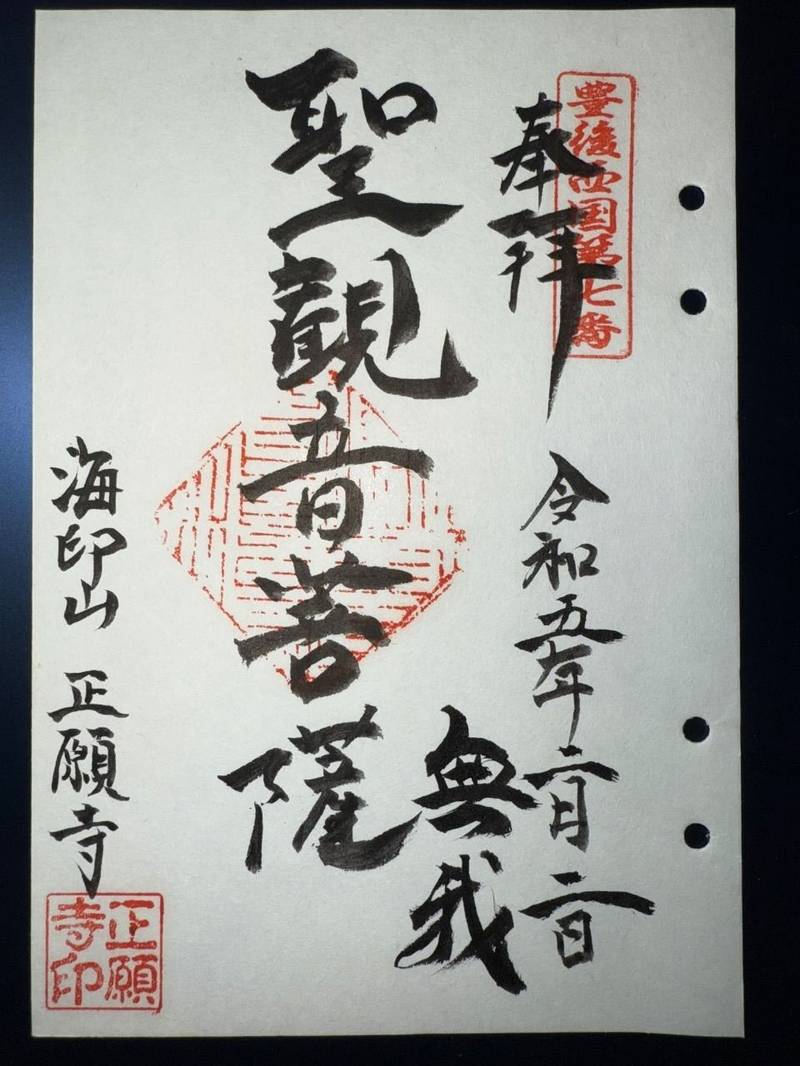 豊後西国第七番
奉拝
令和五年二月二日
無我
聖観音菩薩
海印山 正願寺
正願寺印